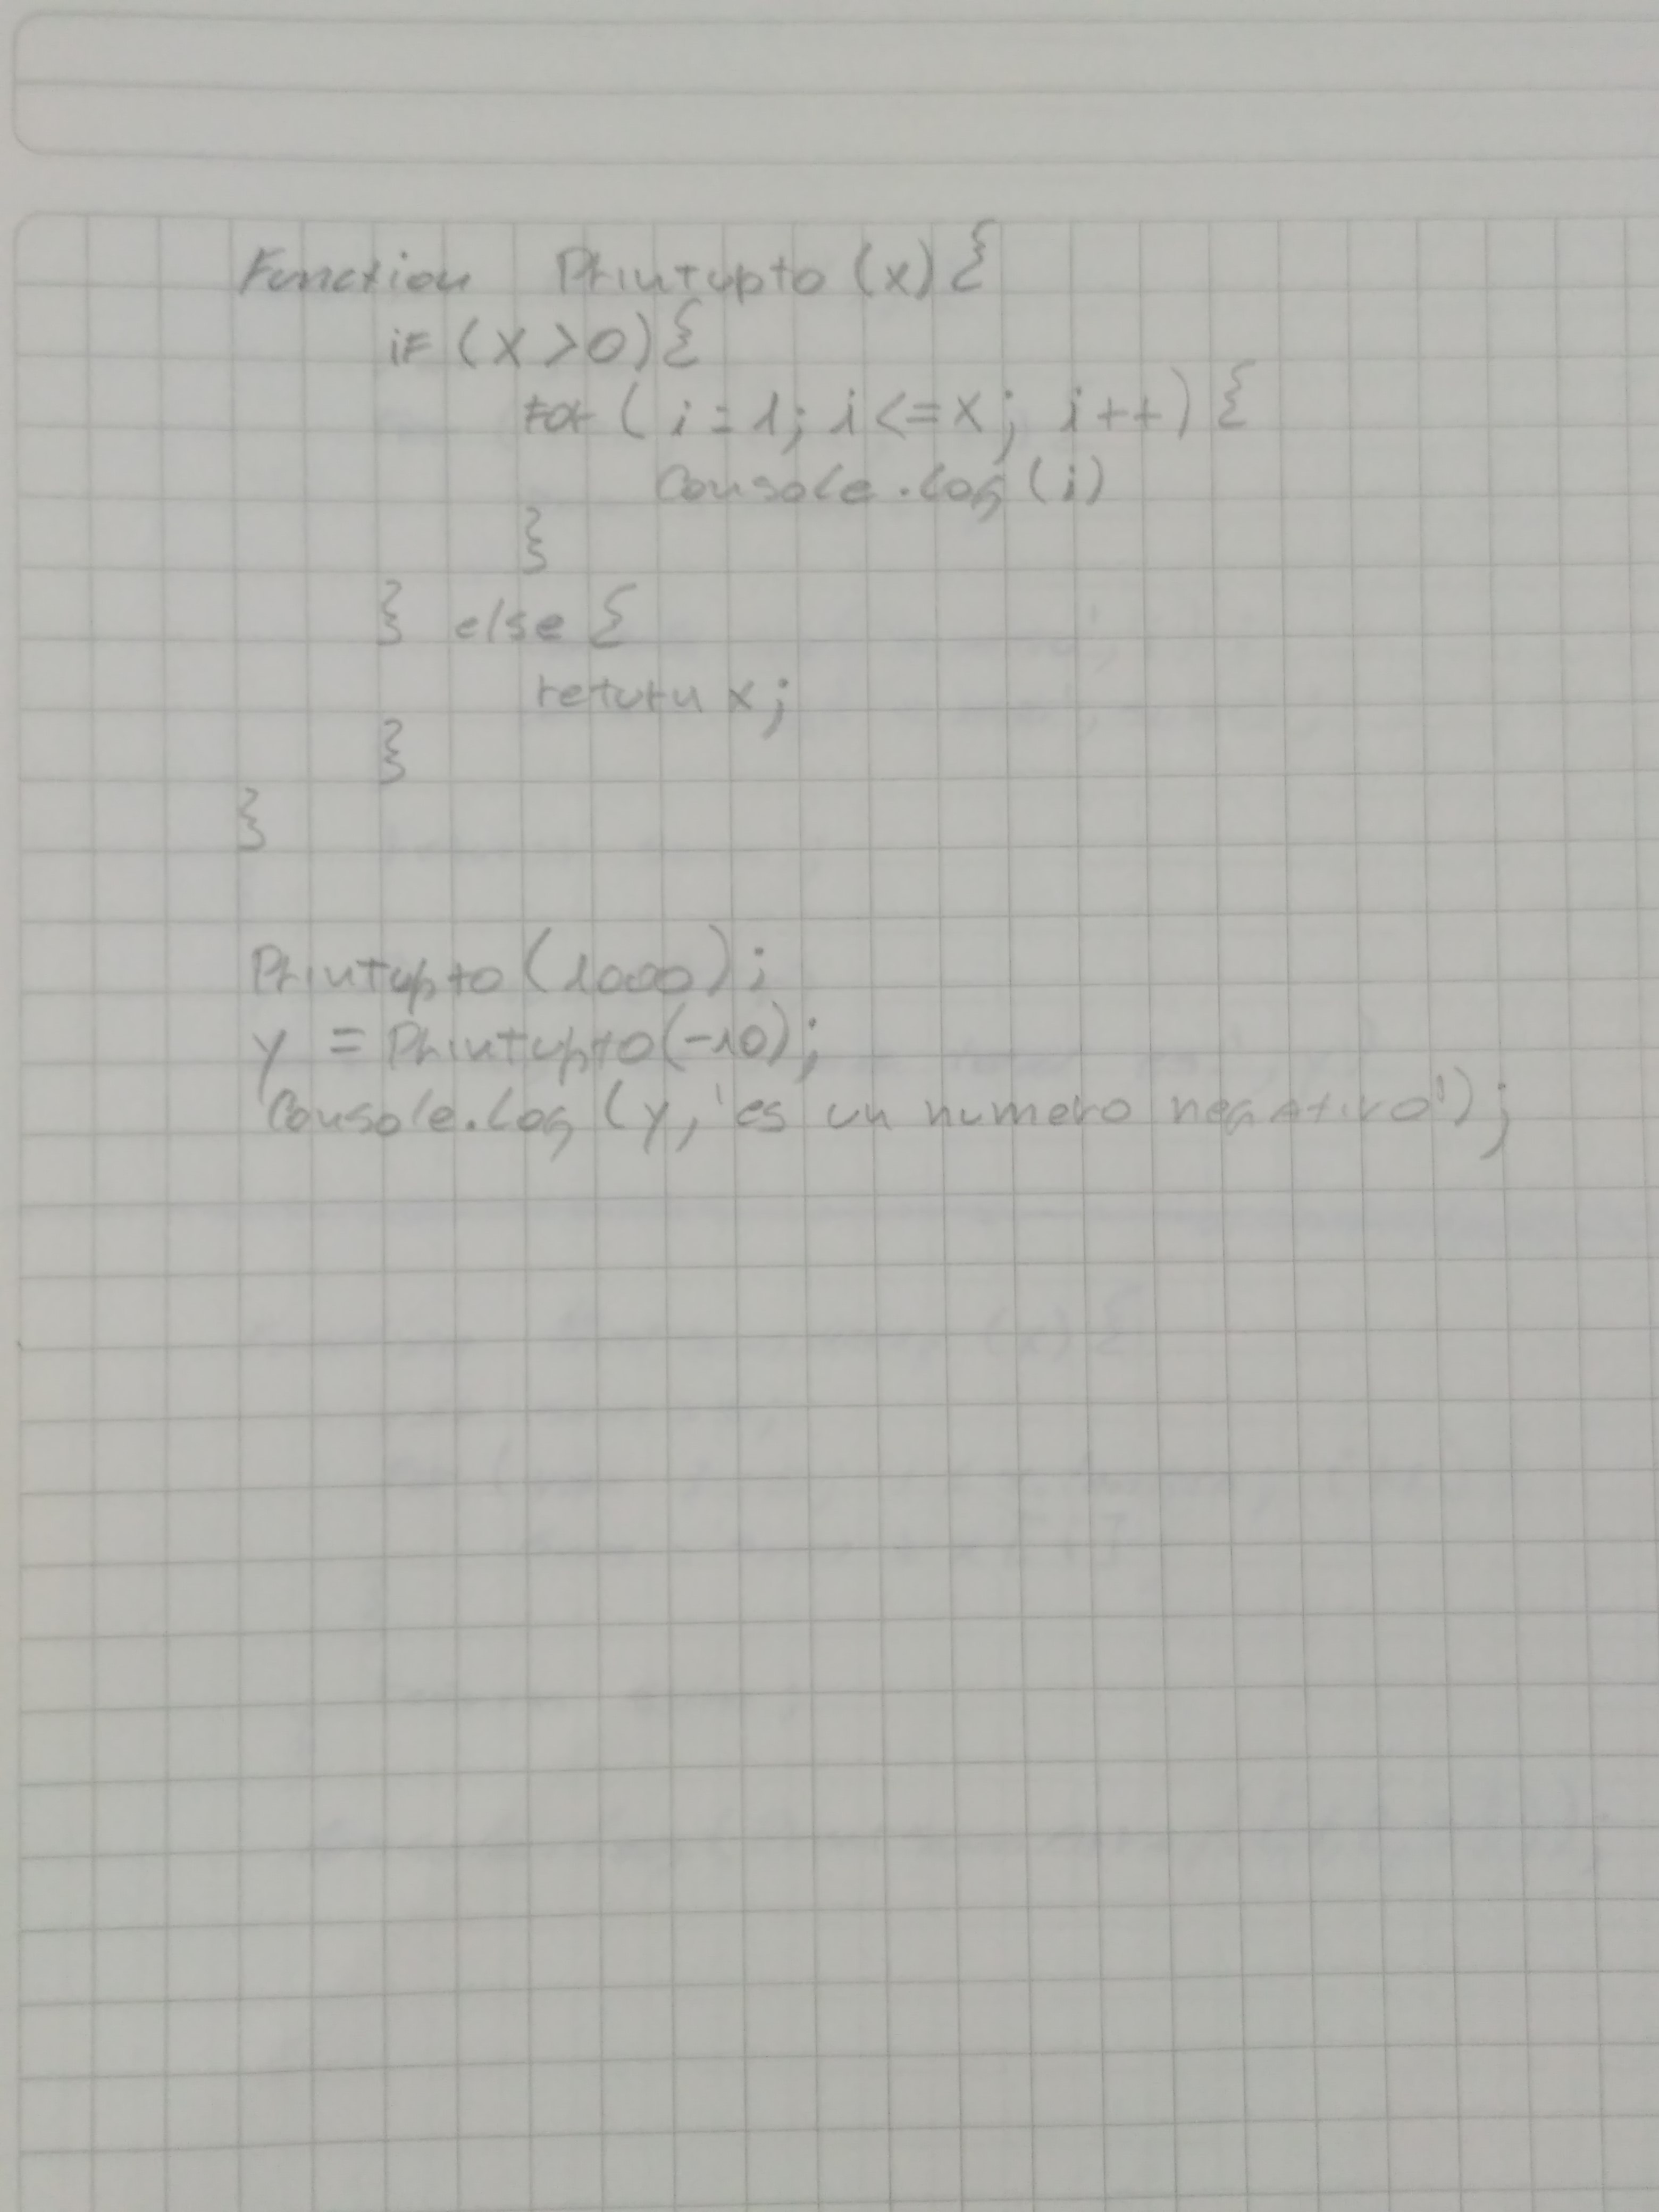 Function Printupto (x) {
if (x > 0) {
for ( i = 1; i <= x; i++) {
Console.log (i)
}
} else {
return x;
}
}
Printupto (1000);
y = Printupto(-10);
Console.log (y, 'es un numero negativo');